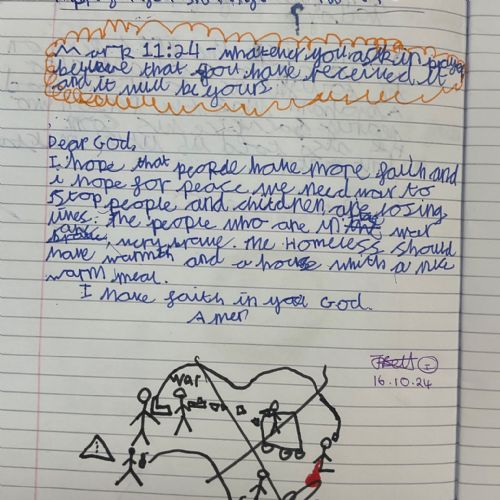 Mark 11:24 - whatever you ask in prayer
believe that you have received it
and it will be yours.
Dear God,
I hope that people have more faith and
i hope for peace we need war to
stop people and children are losing
lives. The people who are in the war
are very brave. The Homeless should
have warmth and a house with a nice
warm meal.
I have faith in you God.
Amen
16.10.24
war